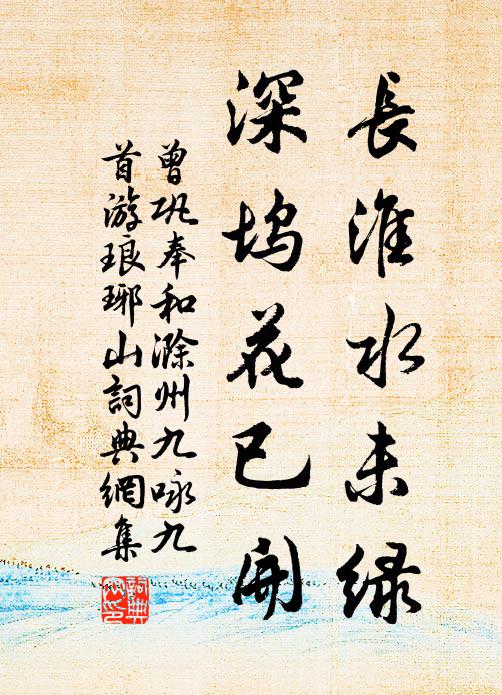 長淮水未緑
深塢花已開
曾巩奉和滁州九咏九
首游琅琊山詞典網集